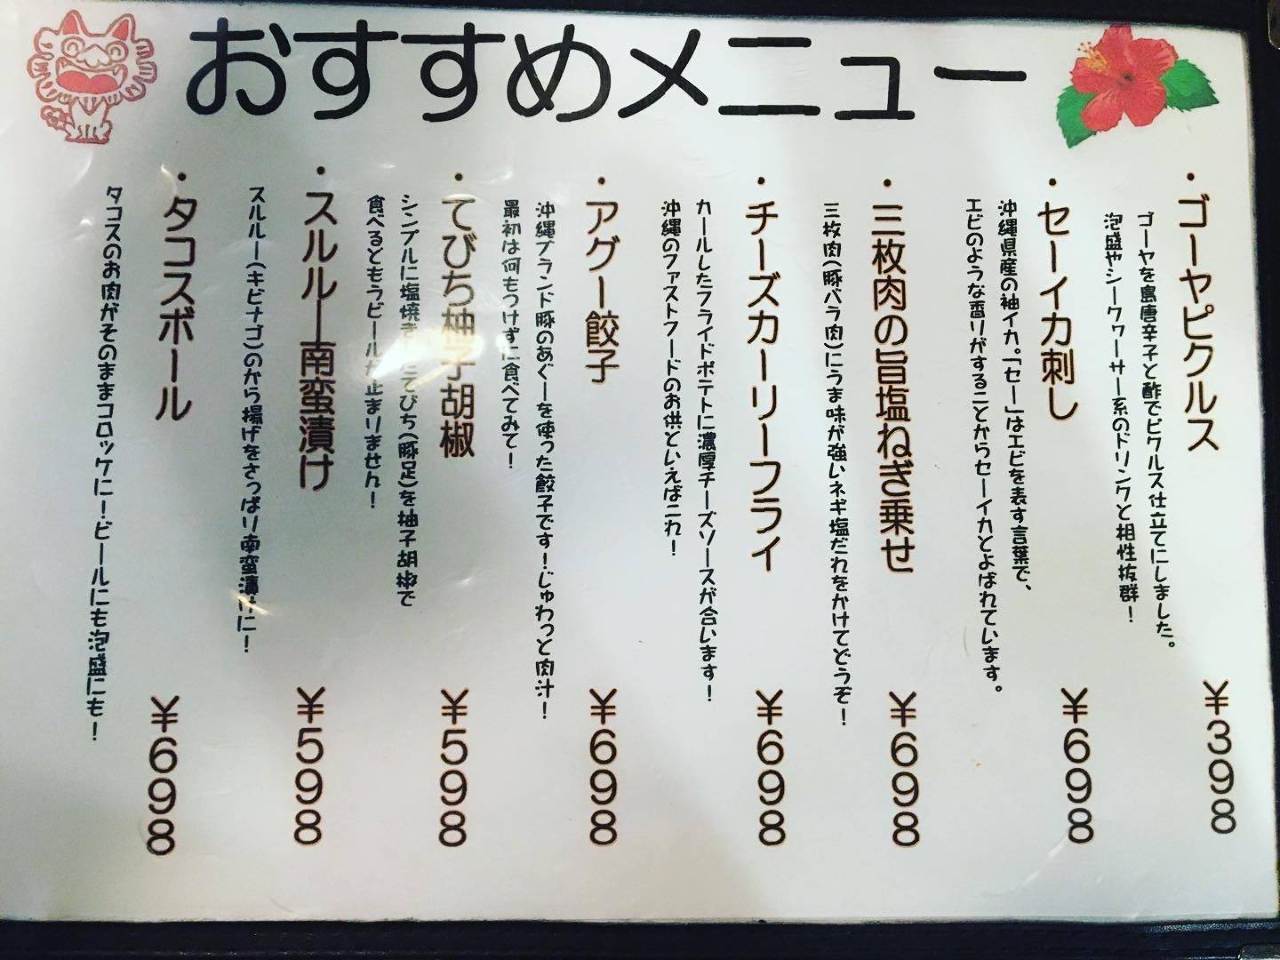 おすすめメニュー
・ゴーヤピクルス ¥398
ゴーヤを島唐辛子と酢でピクルス仕立てにしました。
泡盛やシークヮーサー系のドリンクと相性抜群！
・セーイカ刺し ¥698
沖縄県産の袖イカ。「セー」はエビを表す言葉で、
エビのような香りがすることからセーイカとよばれています。
・三枚肉の旨塩ねぎ乗せ ¥698
三枚肉(豚バラ肉)にうま味が強いネギ塩だれをかけてどうぞ！
・チーズカーリーフライ ¥698
カールしたフライドポテトに濃厚チーズソースが合います！
沖縄のファストフードのお供といえばこれ！
・アグー餃子 ¥698
沖縄ブランド豚のあぐーを使った餃子です！じゅわっと肉汁！
最初は何もつけずに食べてみて！
・てびち柚子胡椒 ¥598
シンプルに塩焼きにてびち(豚足)を柚子胡椒で
食べるともうビールが止まりません！
・スルルー南蛮漬け ¥598
スルルー(キビナゴ)のから揚げをさっぱり南蛮漬けに！
・タコスボール ¥698
タコスのお肉がそのままコロッケに！ビールにも泡盛にも！